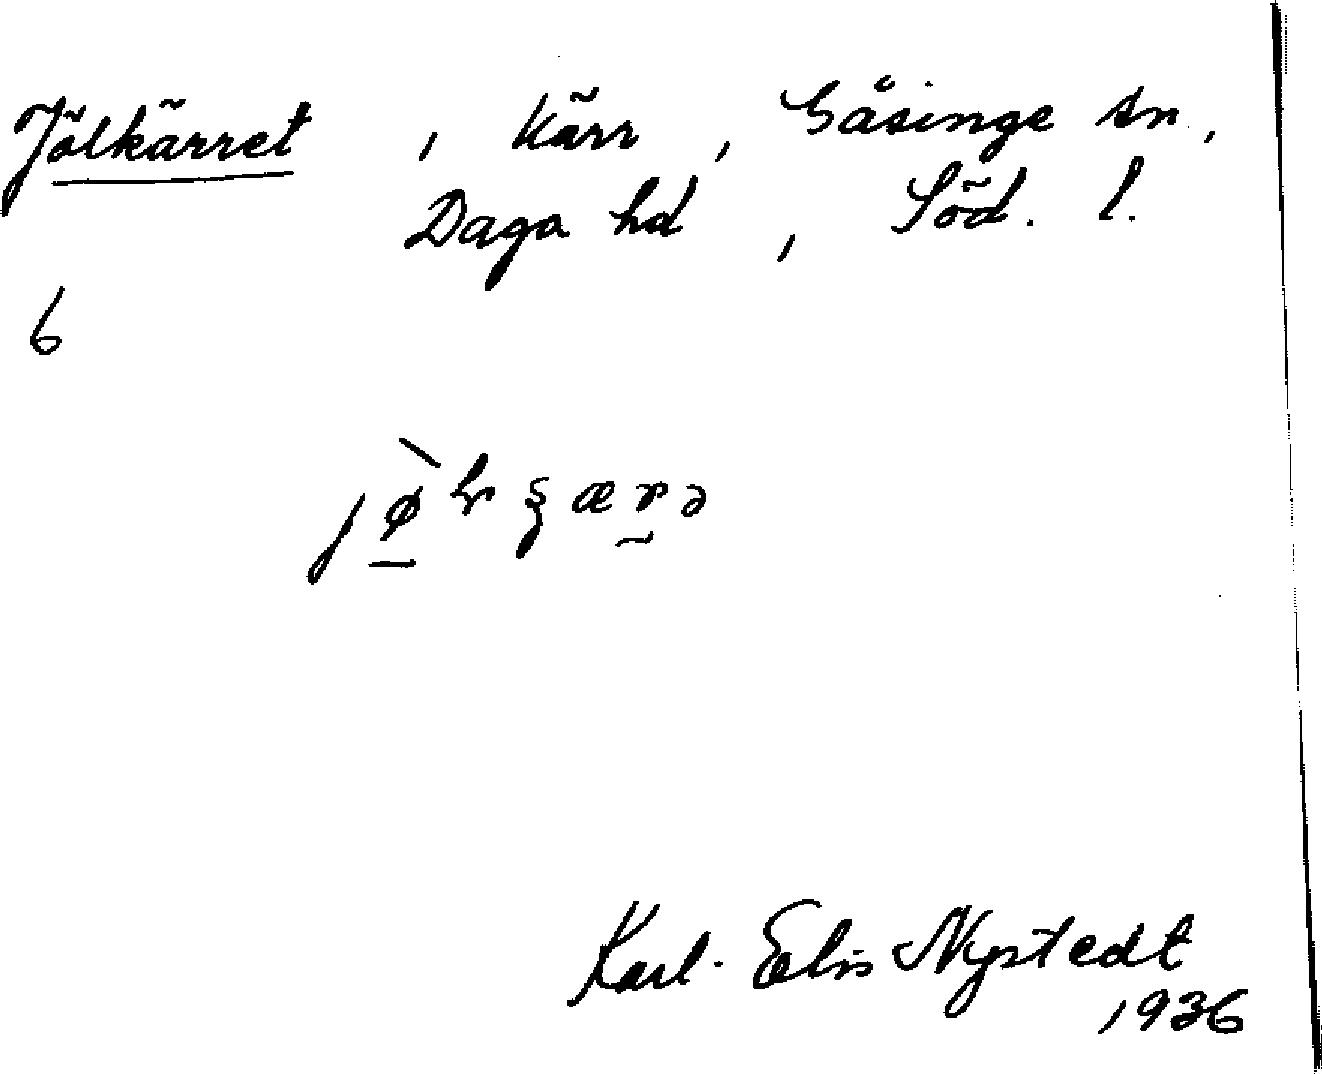 Jölkärret, kärr, Gåsinge sn.,
Daga hd, Söd. l.
6
Karl-Elis Nystedt
1936